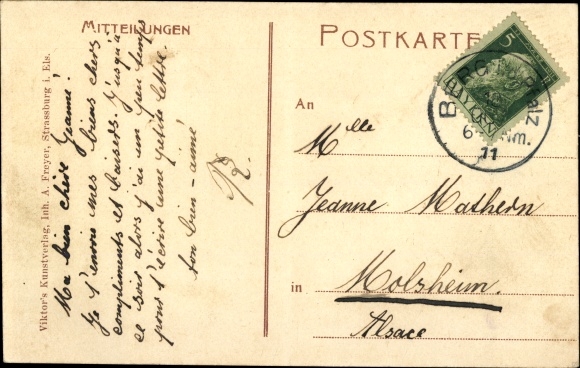 MITTEILUNGEN
Ma bien chère Jeanne!
Je t'envoie mes biens chers
compliments et baisers. Jusqu'à
ce soir alors j'ai un peu temps
pour t'écrire une petite lettre.
ton bien-aimé
R.
Viktor's Kunstverlag, Inh. A. Freyer, Strassburg i. Els.
POSTKARTE
5
BAYERN
11
An
Mlle
Jeanne Mathern
in
Molsheim.
Alsace